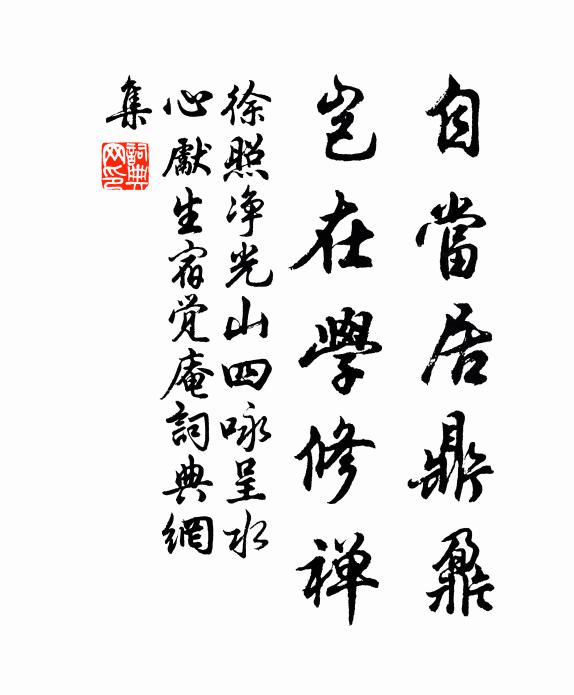 自當居鼎鼐
豈在學修禅
徐照净光山四咏呈水
心獻生宿覚庵詞典網
集
詞典网印